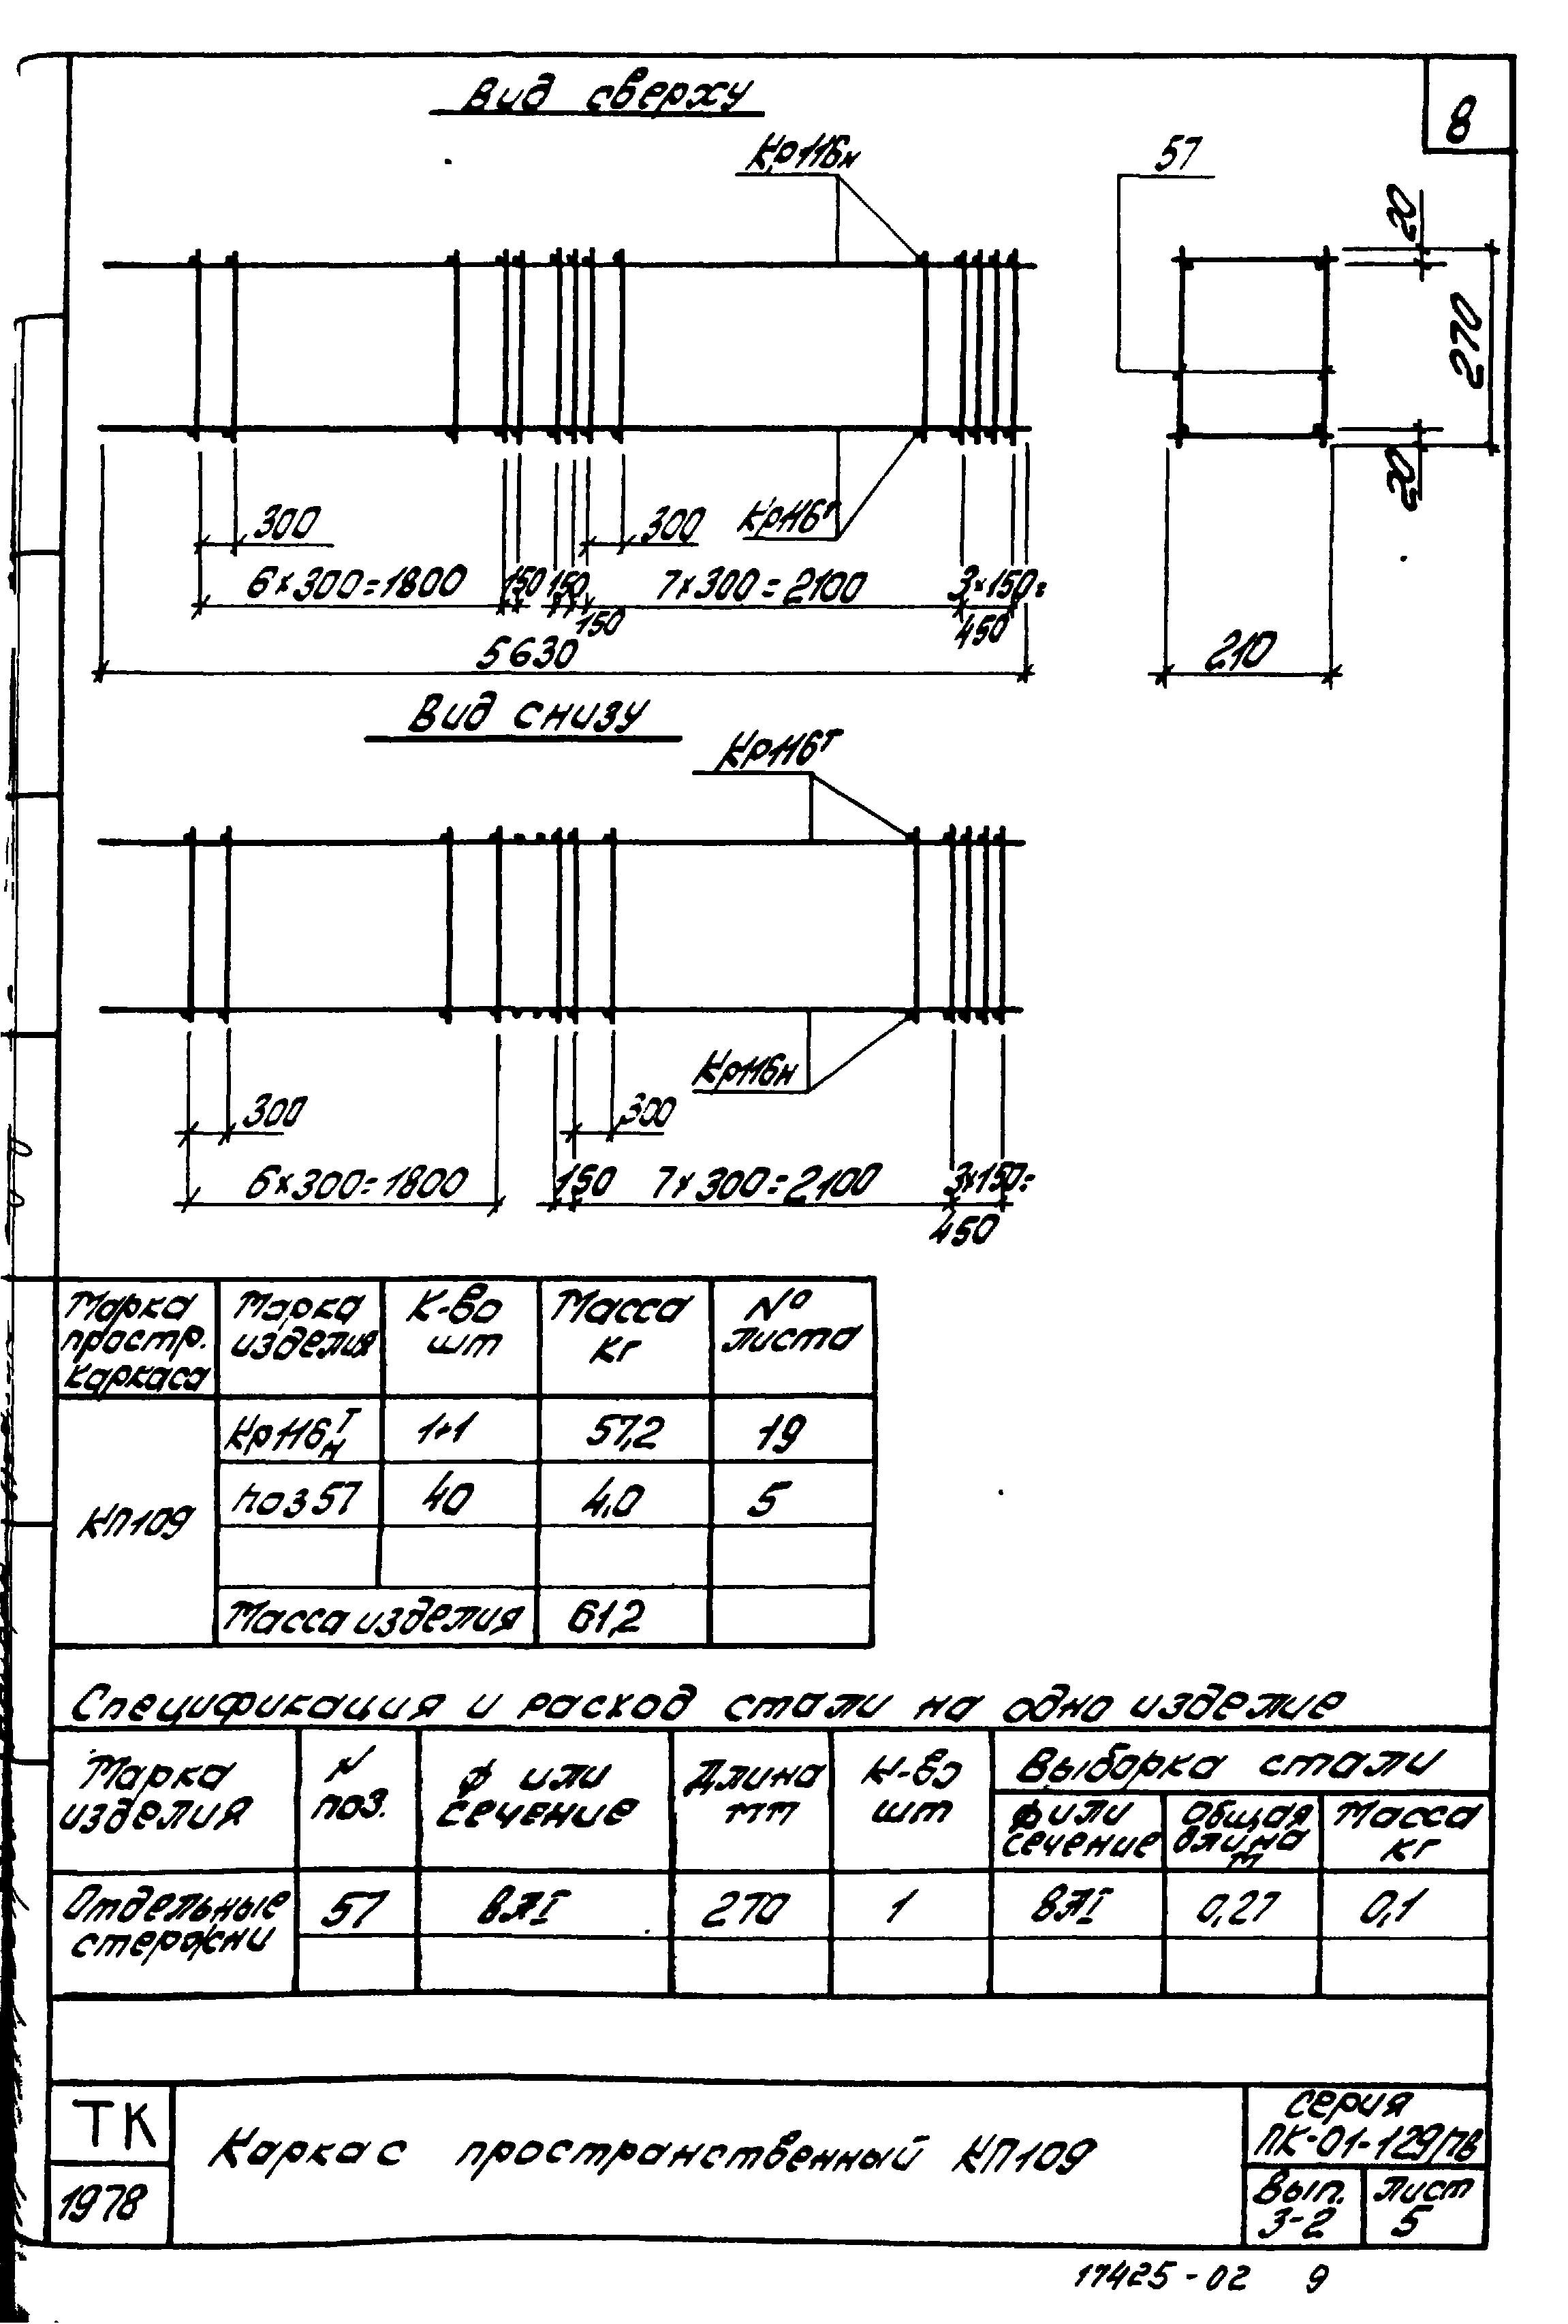 8
Вид сверху
Кр116н
57
20
270
20
300
300
Кр116т
6×300=1800
150
150
7×300=2100
3×150=
150
450
5630
210
Вид снизу
Кр116т
Кр116н
300
300
6×300=1800
150
7×300=2100
3×150=
450
Марка простр. каркаса
Марка изделия
К-во шт
Масса кг
№ листа
КП109
Кр116 т н
1+1
57,2
19
поз 57
40
4,0
5
Масса изделия
61,2
Спецификация и расход стали на одно изделие
Марка изделия
N поз.
ф или сечение
Длина мм
К-во шт
Выборка стали
ф или сечение
Общая длина м
Масса кг
Отдельные стержни
57
8АI
270
1
8АI
0,27
0,1
ТК
1978
Каркас пространственный КП109
серия
ПК-01-129/78
Вып.
3-2
Лист
5
17425-02 9